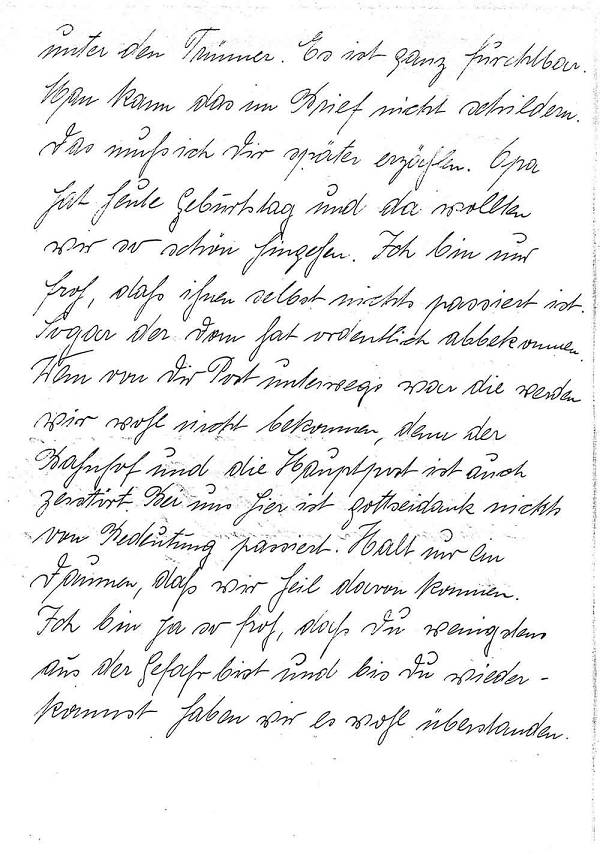 unter den Trümmer. Es ist ganz fürchtbar.
Man kann das im Brief nicht schildern.
Das muß ich Dir später erzählen. Opa
hat heute Geburtstag und da wollten
wir so schön hingehen. Ich bin nur
froh, daß ihnen selbst nichts passiert ist.
Sogar der Dom hat ordentlich abbekommen.
Wenn von Dir Post unterwegs war die werden
wir wohl nicht bekommen, denn der
Bahnhof und die Hauptpost ist auch
zerstört. Bei uns hier ist gottseidank nichts
von Bedeutung passiert. Halt nur ein
Daumen, daß wir heil davon kommen.
Ich bin ja so froh, daß Du wenigstens
aus der Gefahr bist und bis Du wieder-
kommst haben wir es wohl überstanden.